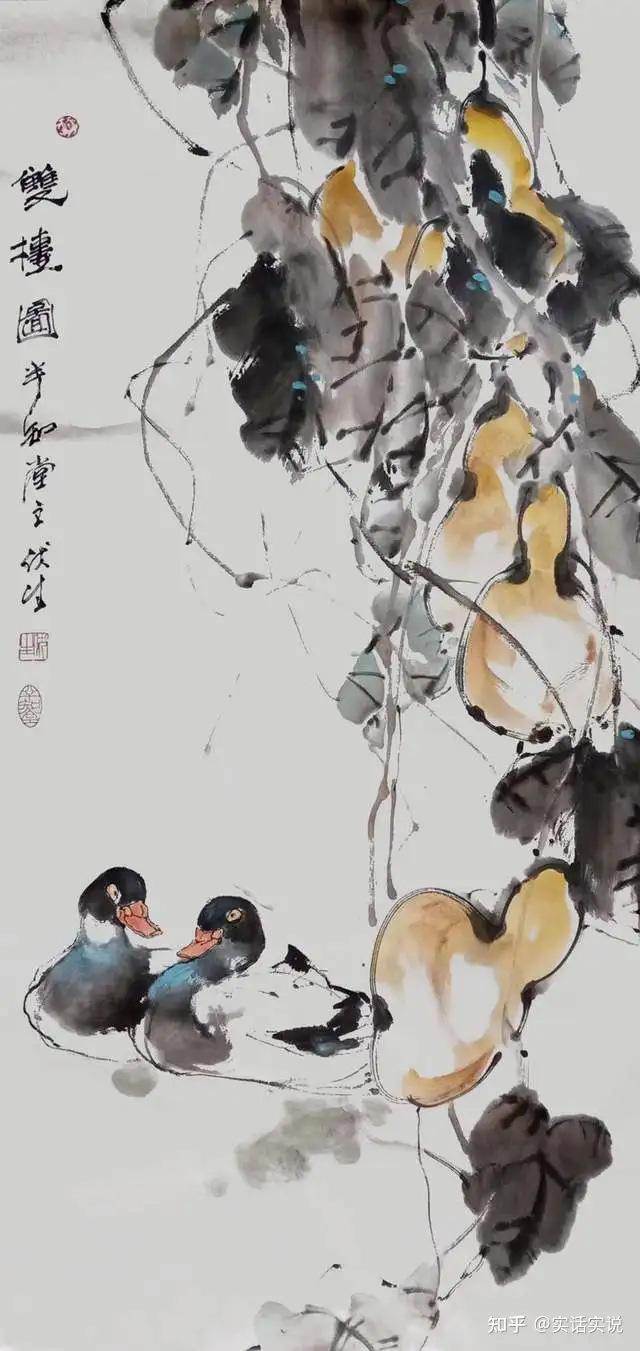 雙棲圖半知堂主伏生
知乎 @实话实说